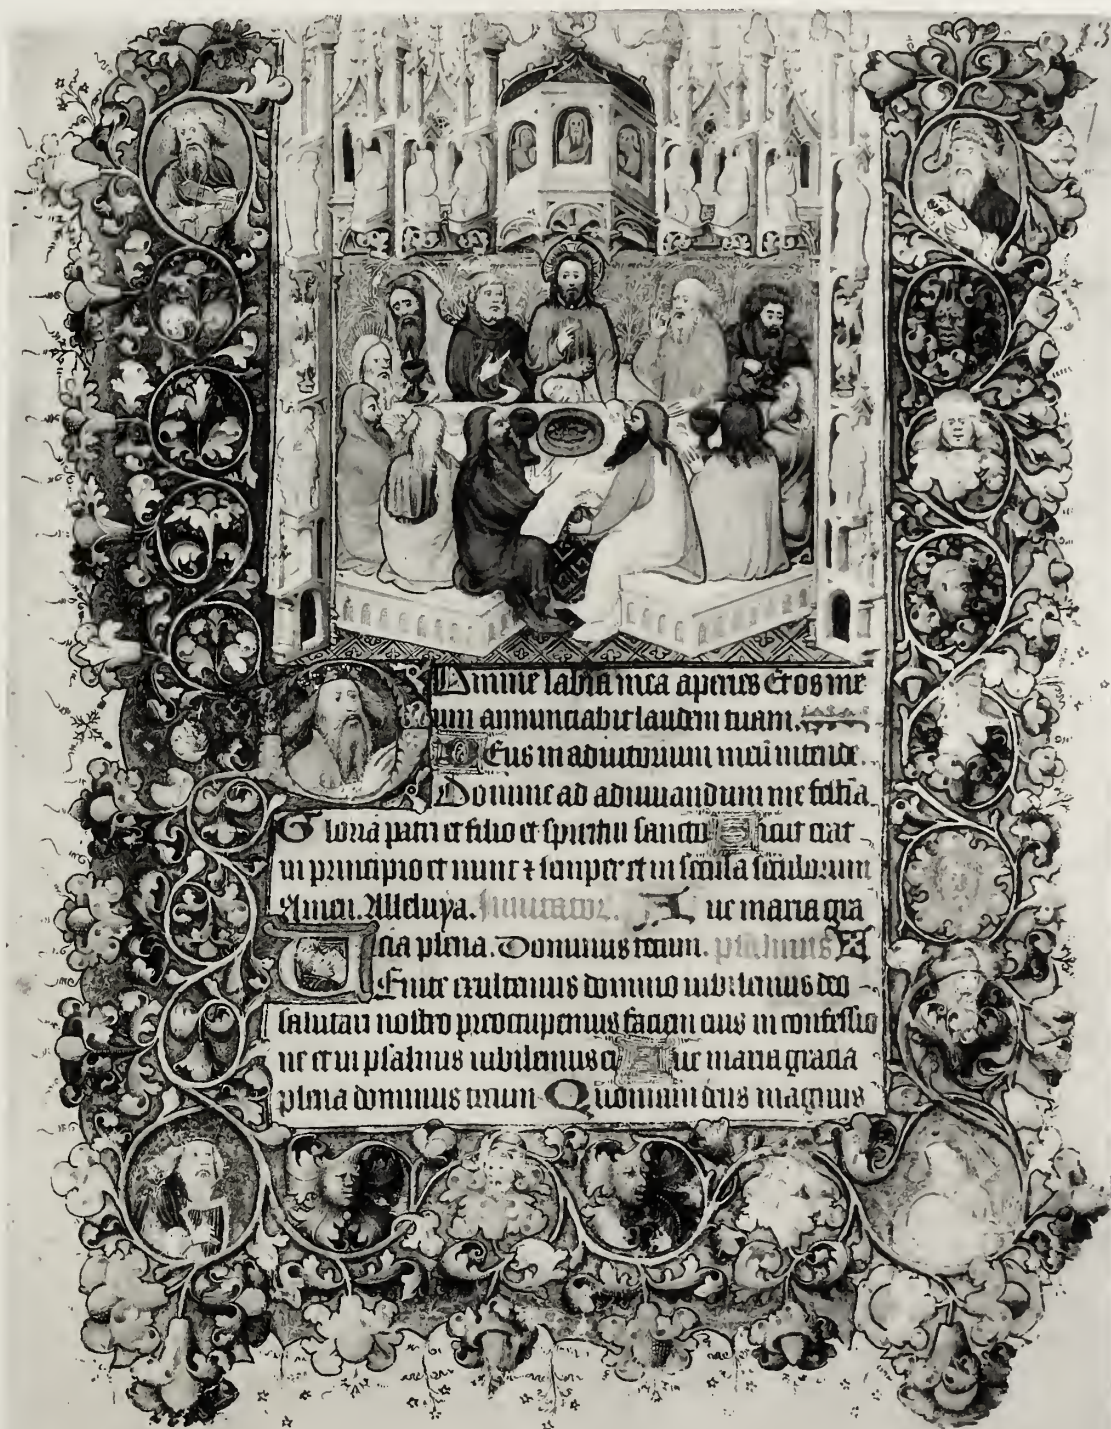 Domine labia mea aperies Et os me
um annunciabit laudem tuam.
Deus in adiutorium meū intende.
Domine ad adiuuandum me festīa
Gloria patri et filio et spiritui sancto Sicut erat
in principio et nunc ⁊ semper et in secula seculorum
Amen. Alleluya. Inuitator. Aue maria gra
cia plena. Dominus tecum. psalmus
Uenite exultemus domino iubilemus deo
salutari nostro preoccupemus faciem eius in confessio
ne et in psalmis iubilemus ei Aue maria gracia
plena dominus tecum Quoniam deus magnus